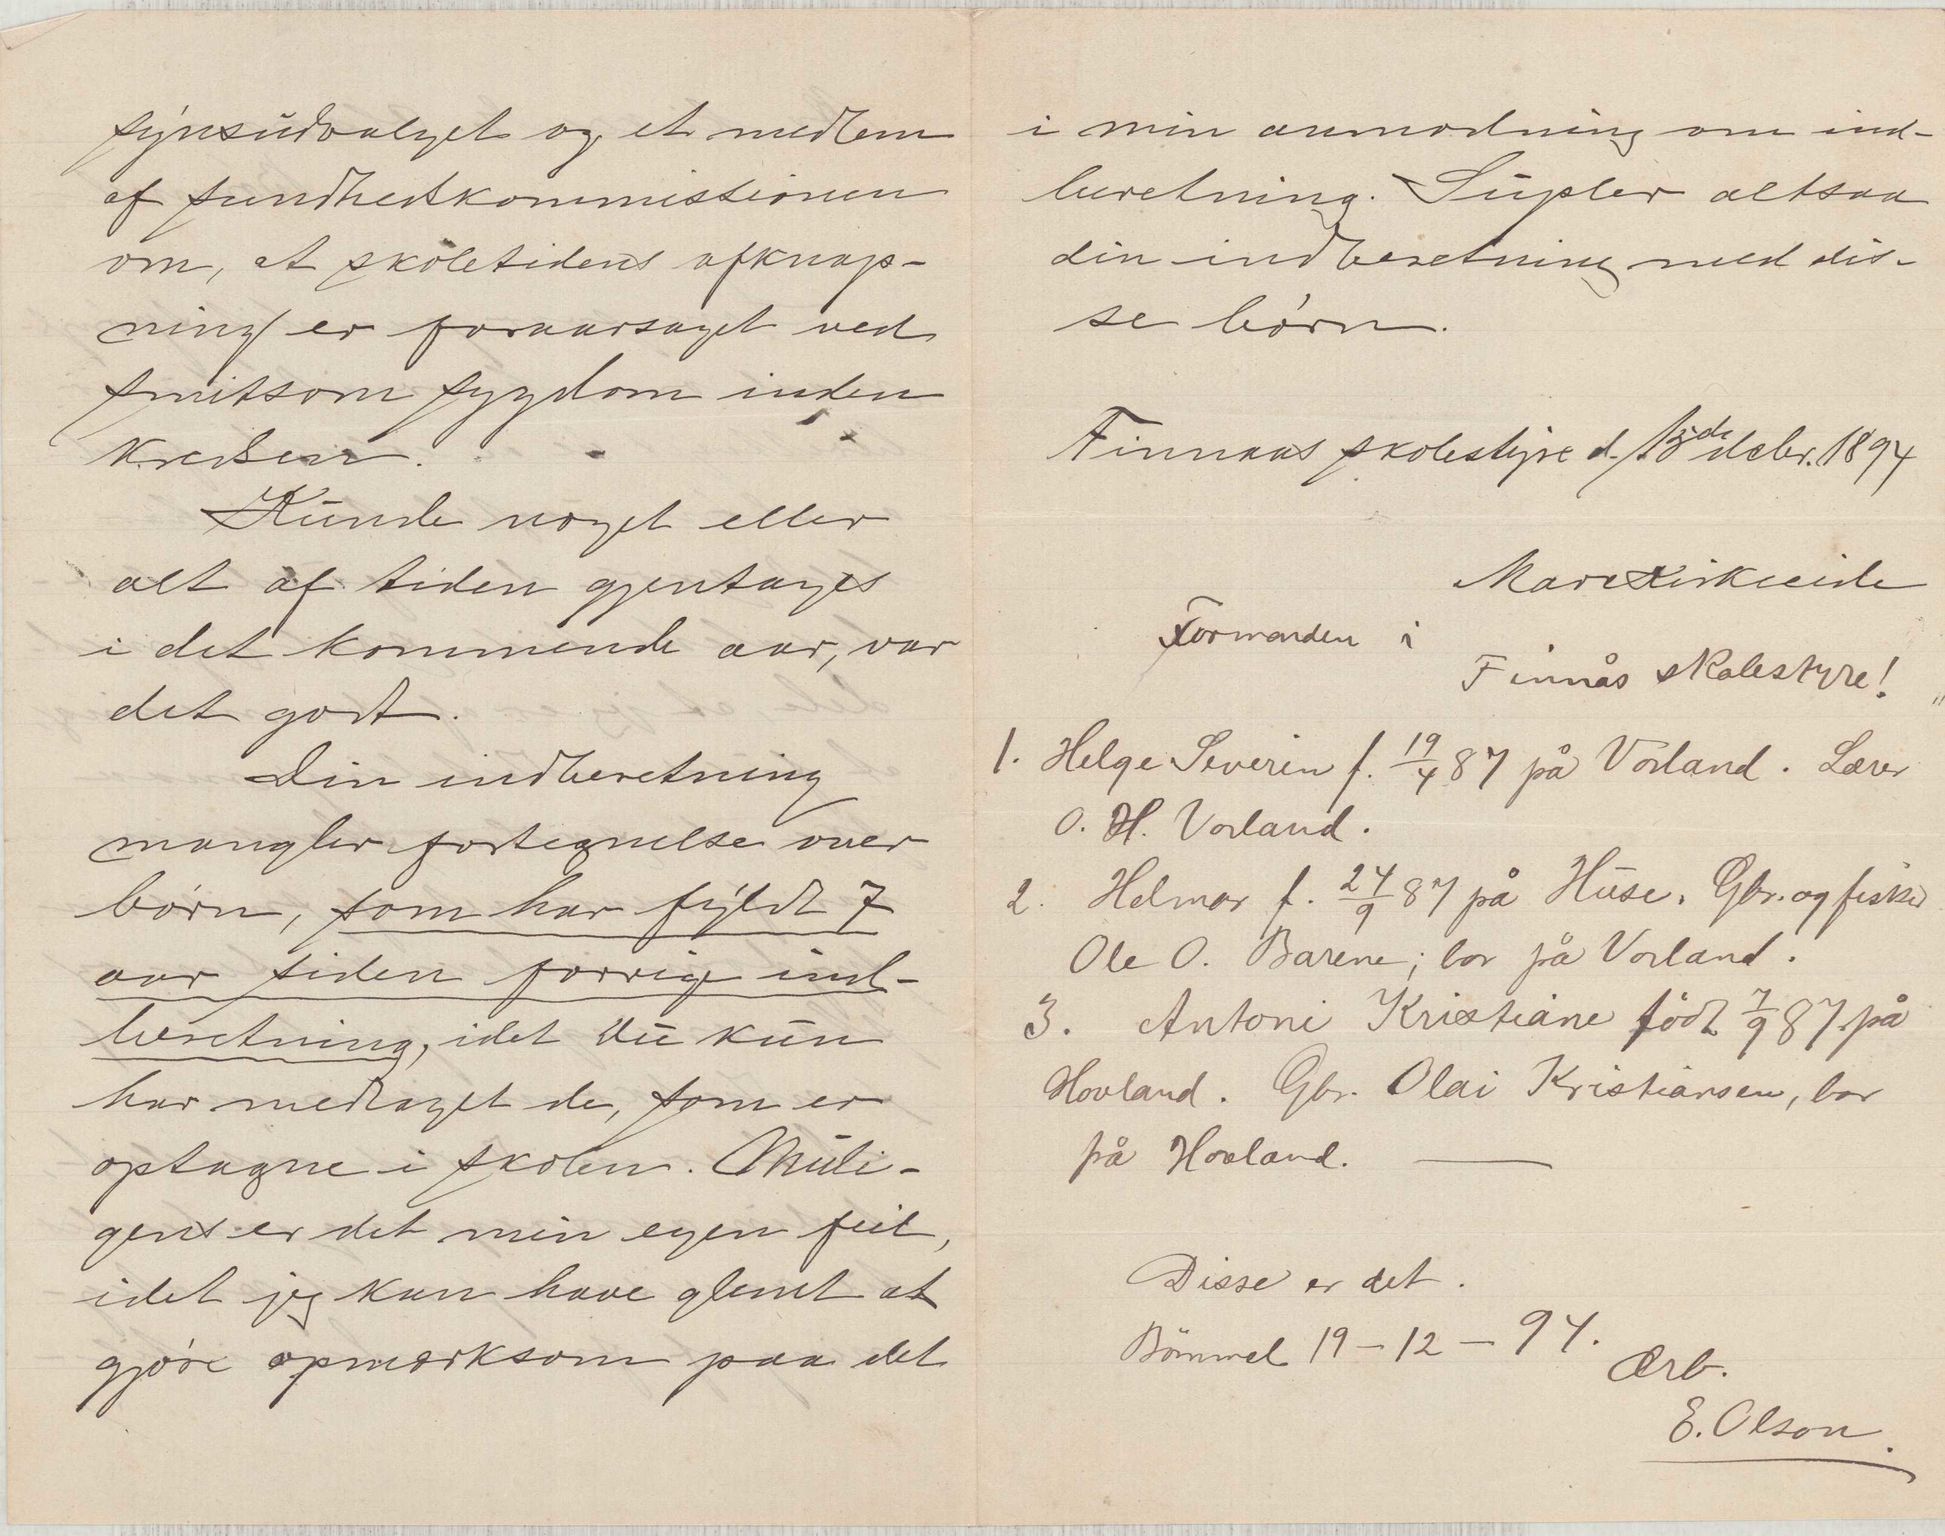 synsudvalget og et medlem
af sundhedskommissionen
om, at skoletidens afknap-
ning er foraarsaget ved
smitsom sygdom inden
kredsen.
Kunde noget eller
alt af tiden gjentages
i det kommende aar, var
det godt.
Din indberetning
mangler fortegnelse over
børn, som har fyldt 7
aar siden forrige ind-
beretning, idet du kun
har medtaget de, som er
optagne i skolen. Muli-
gens er det min egen feil,
idet jeg kan have glemt at
gjøre opmærksom paa det
i min anmodning om ind-
beretning. Supler altsaa
din indberetning med dis-
se børn.
Finnaas skolestyre d. 13de decbr. 1894
Mare Kirkeeide
Formanden i
Finnås skolestyre!
1. Helge Severin f. 19/4 87 på Vorland. Lærer
O. H. Vorland.
2. Helmar f. 24/9 87 på Huse. Gbr. og fisker
Ole O. Barene; bor på Vorland.
3. Antoni Kristiane född 7/9 87 på
Hovland. Gbr. Olai Kristiansen, bor
på Hovland.
Disse er det.
Bömmel 19-12-94.
Ærb.
E. Olson.